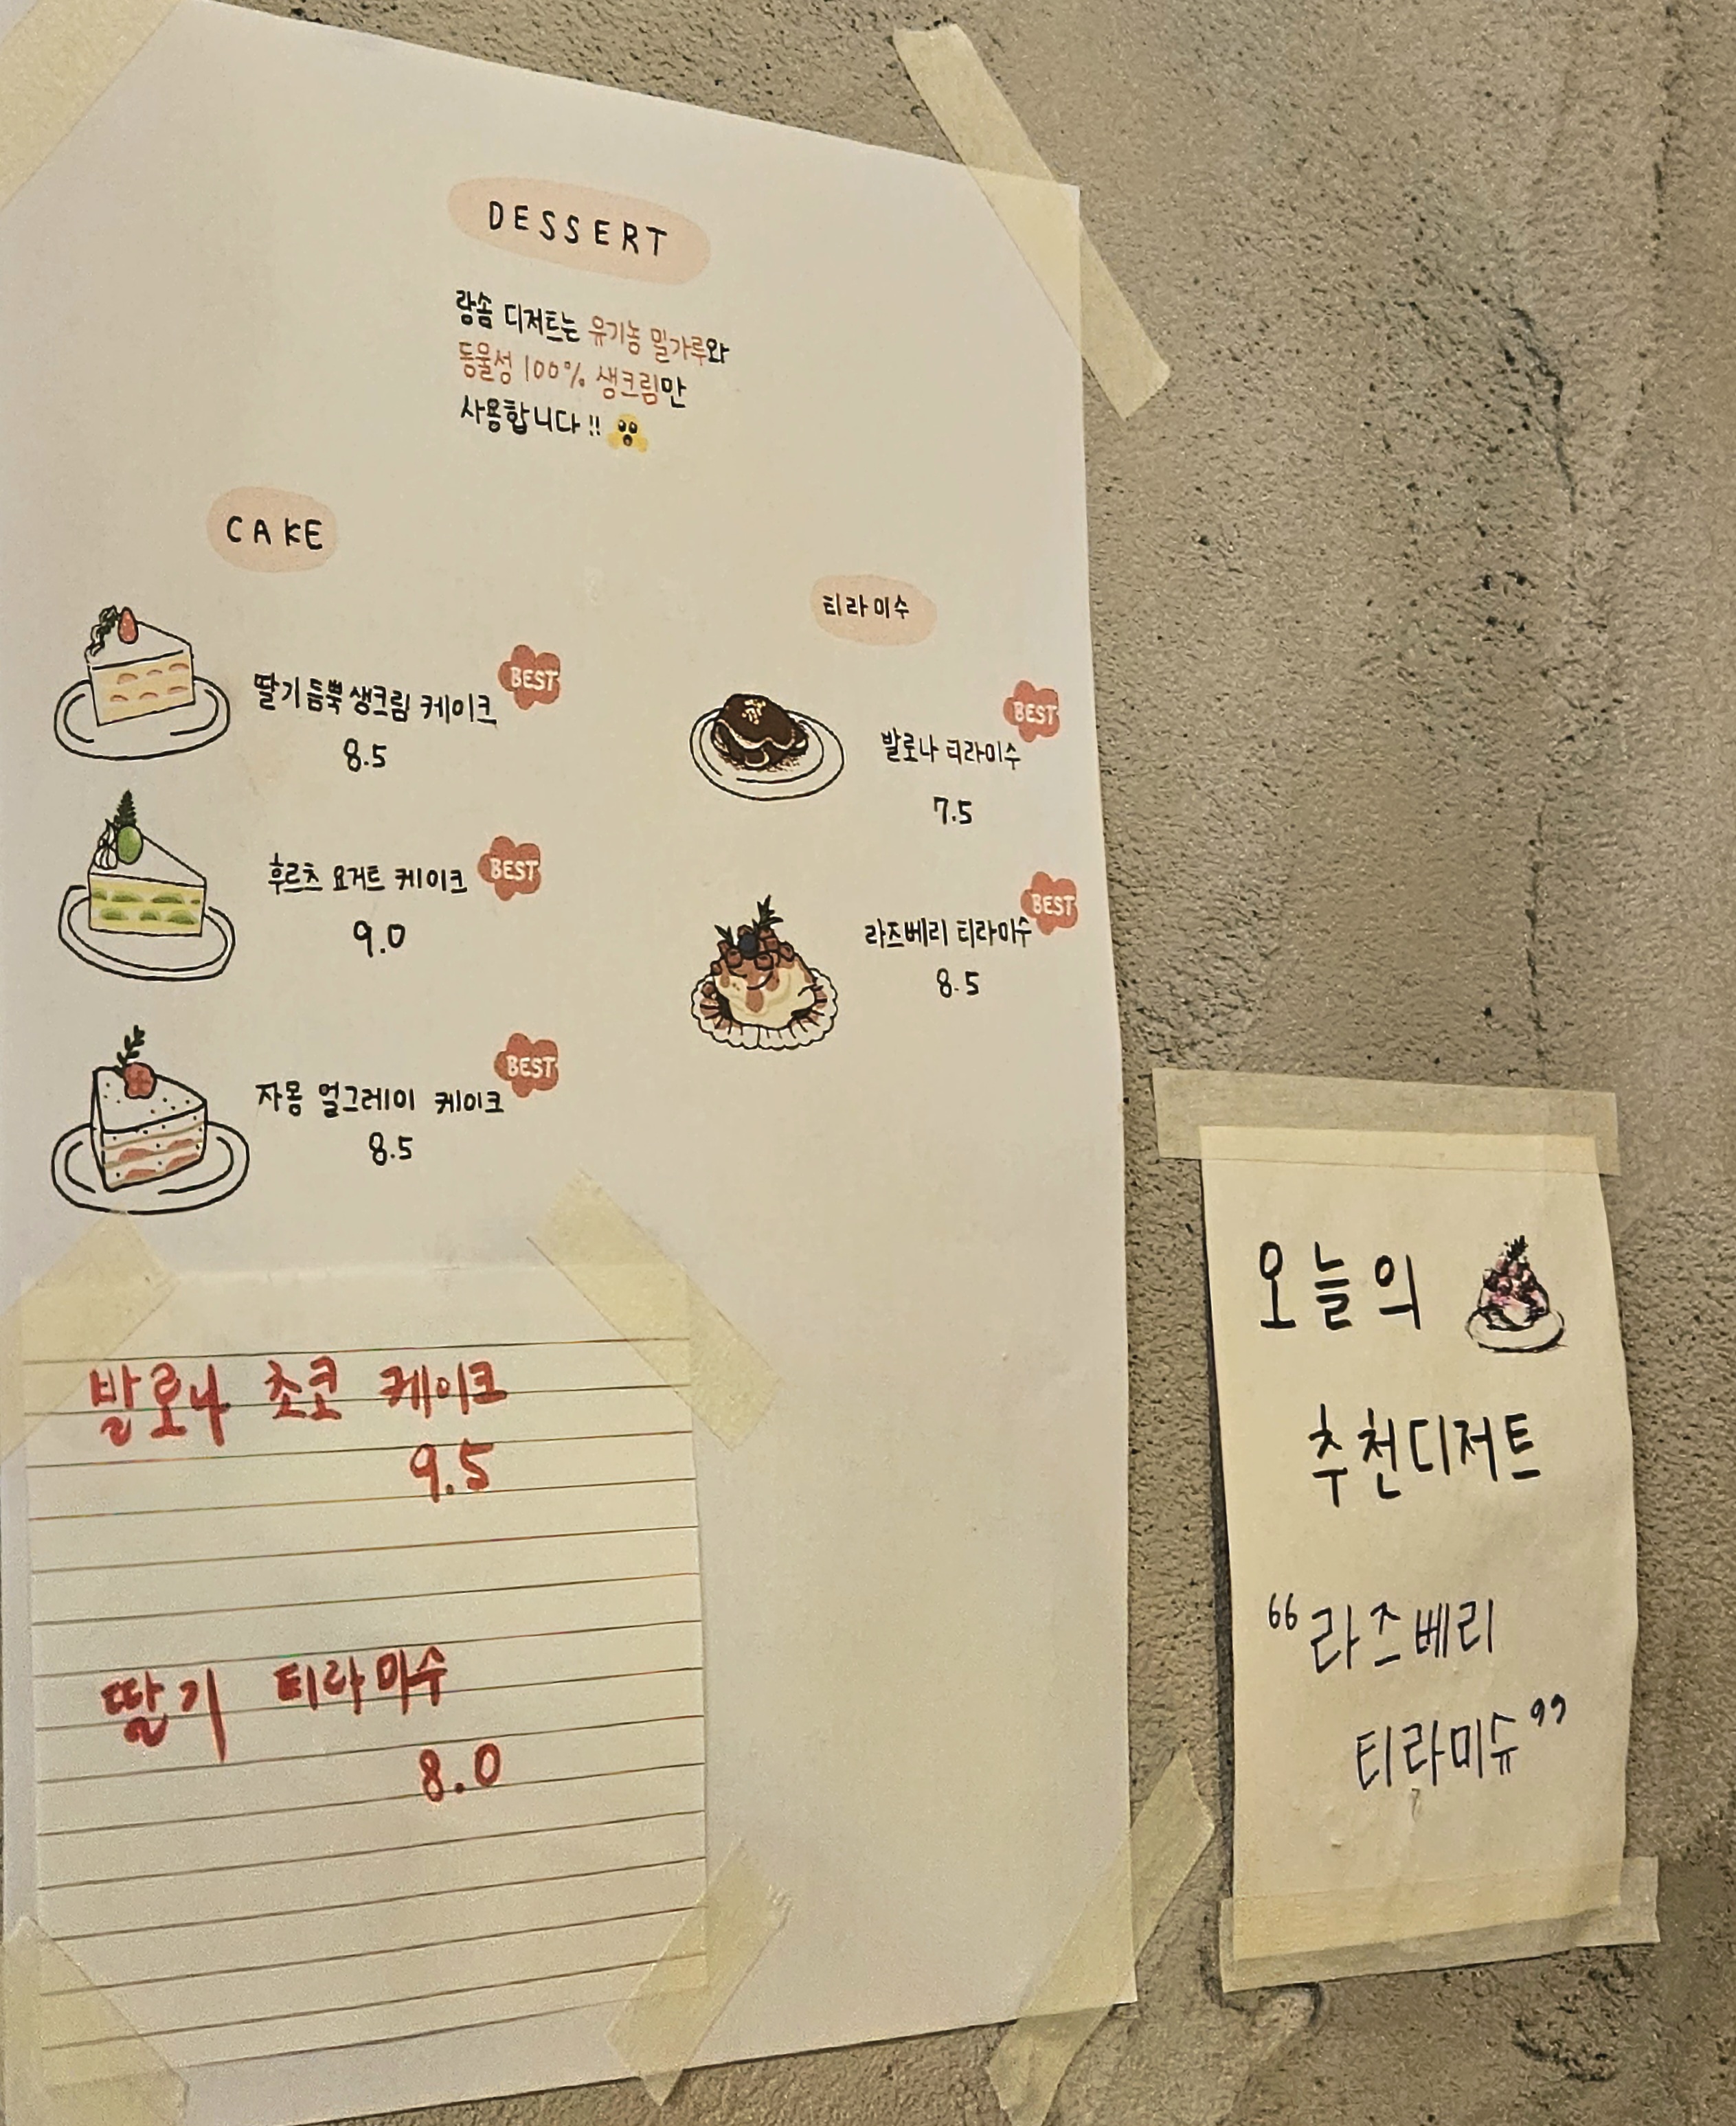 DESSERT
랑솜 디저트는 유기농 밀가루와
동물성 100% 생크림만
사용합니다!!
CAKE
딸기듬뿍생크림 케이크
BEST
8.5
후르츠 요거트 케이크
BEST
9.0
자몽 얼그레이 케이크
BEST
8.5
티라미수
발로나 티라미수
BEST
7.5
라즈베리 티라미수
BEST
8.5
발로나 초코 케이크
9.5
딸기 티라미수
8.0
오늘의
추천디저트
“라즈베리
티라미슈”